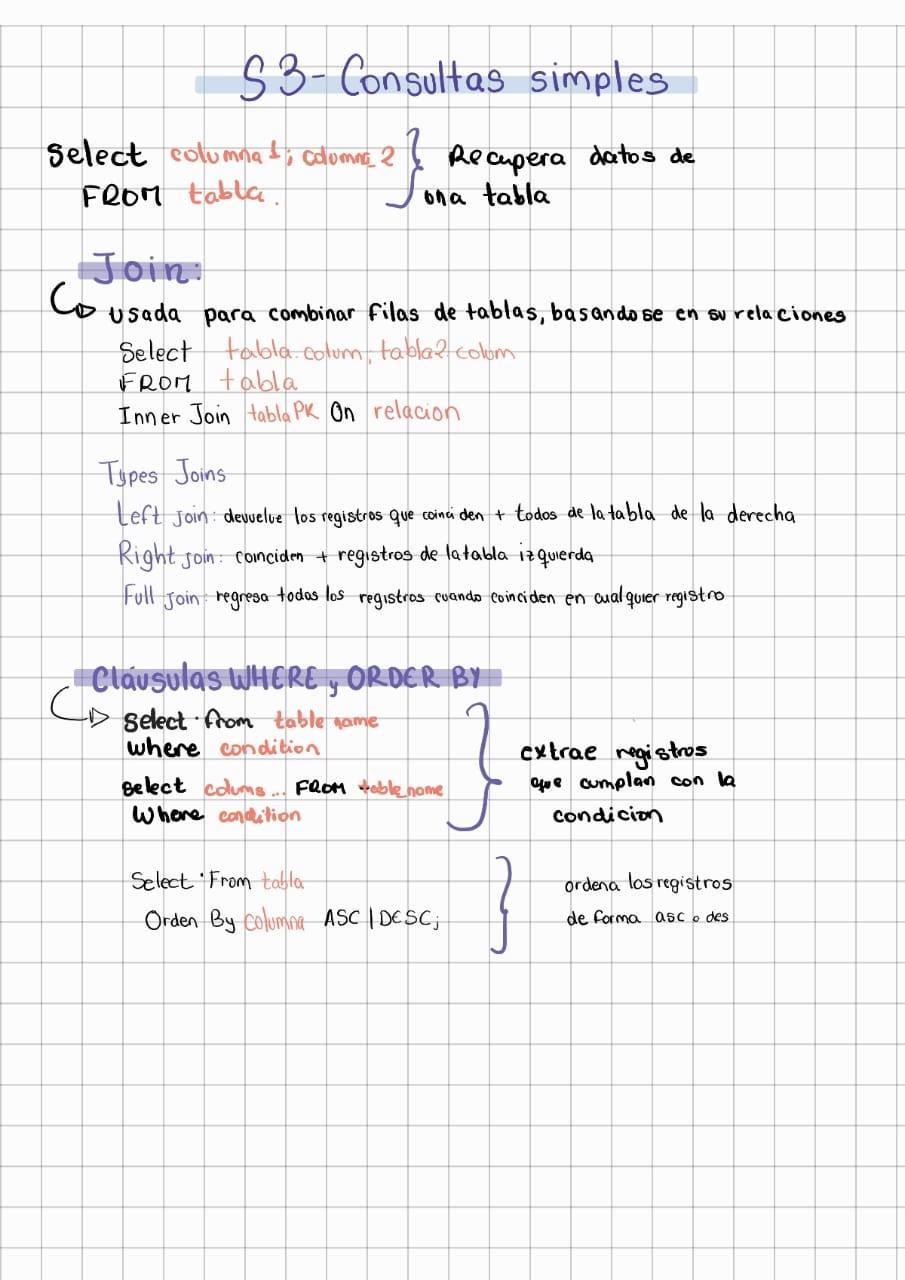 S3- Consultas simples
Select columna 1; columna 2 } Recupera datos de
FROM tabla. una tabla
Join:
usada para combinar filas de tablas, basandose en su relaciones
Select tabla.colum; tabla2.colum
FROM tabla
Inner Join tabla PK On relacion
Types Joins
Left Join: devuelve los registros que coinciden + todos de la tabla de la derecha
Right Join: coinciden + registros de la tabla izquierda
Full Join: regresa todos los registros cuando coinciden en cualquier registro
Cláusulas WHERE y ORDER BY
Select · from table name
where condition
Select colums... FROM table_name
Where condition
extrae registros
que cumplan con la
condicion
Select · From tabla
Orden By columna ASC | DESC;
ordena los registros
de forma asc o des